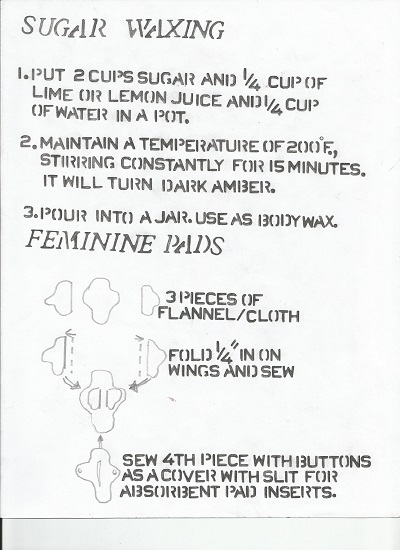 SUGAR WAXING
1. PUT 2 CUPS SUGAR AND 1/4 CUP OF
LIME OR LEMON JUICE AND 1/4 CUP
OF WATER IN A POT.
2. MAINTAIN A TEMPERATURE OF 200°F,
STIRRING CONSTANTLY FOR 15 MINUTES.
IT WILL TURN DARK AMBER.
3. POUR INTO A JAR. USE AS BODY WAX.
FEMININE PADS
3 PIECES OF
FLANNEL/CLOTH
FOLD 1/4" IN ON
WINGS AND SEW
SEW 4TH PIECE WITH BUTTONS
AS A COVER WITH SLIT FOR
ABSORBENT PAD INSERTS.